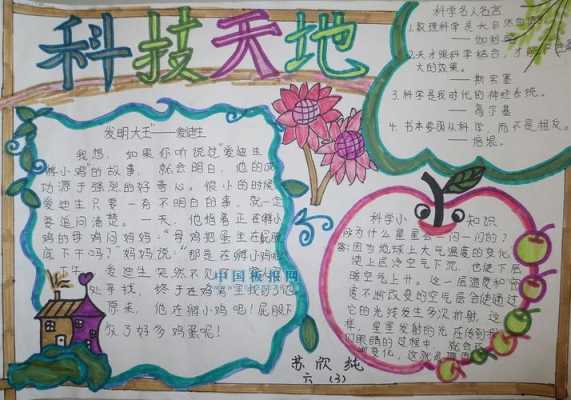 科技天地
发明大王"——爱迪生
我想，如果你听说过"爱迪生
孵小鸡"的故事，就会明白，他的成
功源于强烈的好奇心。很小的时候，
爱迪生只要一有不明白的事，就一定
要追问清楚。一天，他指着正在孵小
鸡的母鸡问妈妈："母鸡把蛋坐在屁股
底下干吗？"妈妈说："那是在孵小鸡
爱迪生突然不见了
处寻找，终于在鸡窝里找到了他
原来，他在孵小鸡呢！屁股下
放了好多鸡蛋呢！
中国板报网
科学名人名言
1.数理科学是大自
——伽利略
2.天才跟科学结合，才能
大的效果。
——斯宾塞
3.科学是我时代的神经系统。
——高尔基
4.书本要跟从科学，而不是相反。
——培根。
科学小知识
问：为什么星星会一闪一闪的？
答：因为地球上大气温度的变化，
使上层冷空气下沉，也使下层
暖空气上升。这一层温度和密
度不断改变的空气层会使通过
它的光线发生多次折射，这
样，星星发射的光在传到
们眼睛的过程中，就会
变化，这就是
苏欣纯
六（3）